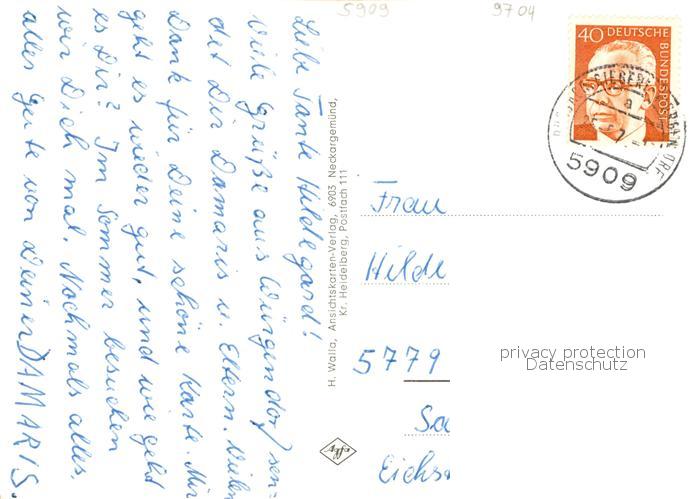 5909
9704
Liebe Tante Hildegard!
Viele Grüße aus Würgendorf sen-
det Dir Damaris u. Eltern. Vielen
Dank für Deine schöne Karte. Mir
geht es wieder gut, und wie geht
es Dir? Im Sommer besuchen
wir Dich mal. Nochmals alles,
alles Gute von Deiner DAMARIS.
H. Walla, Ansichtskarten-Verlag, 6903 Neckargemünd,
Kr. Heidelberg, Postfach 111
Agfa
40 DEUTSCHE
BUNDESPOST
a
5909
Frau
Hilde
5779
Eichs
privacy protection
Datenschutz